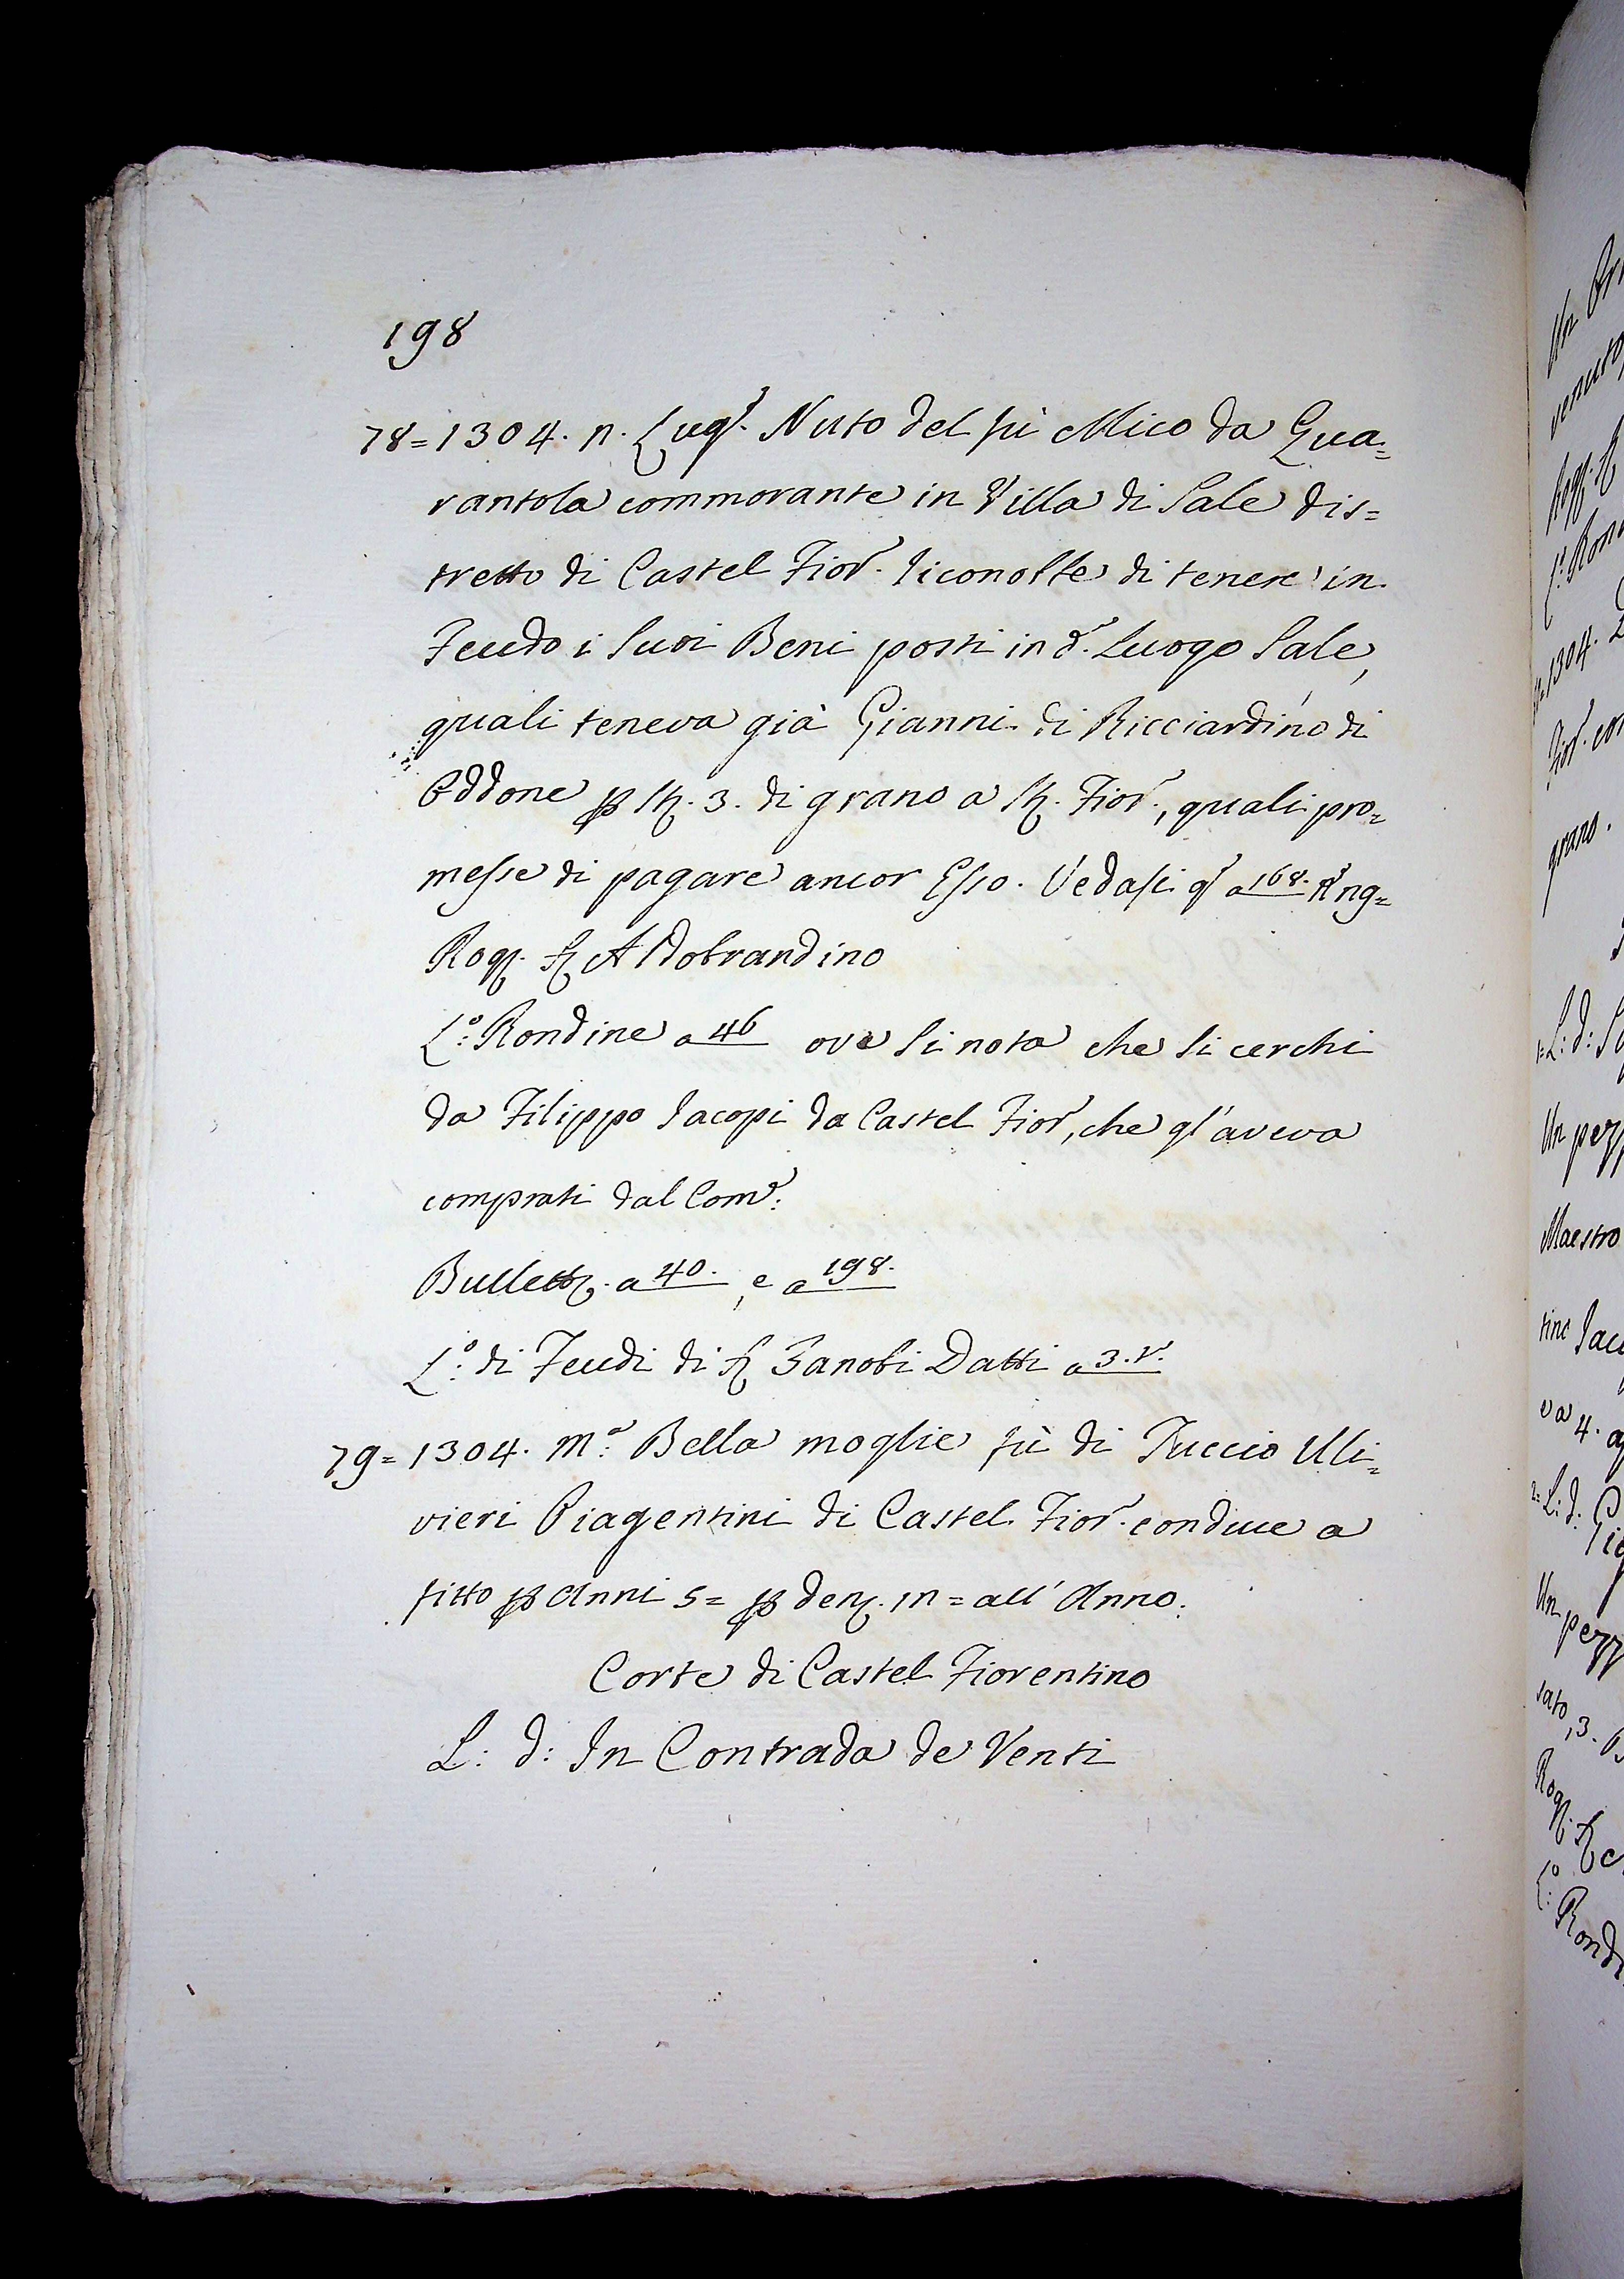 198
78=1304. n. Lug.º Nuto del fù Mico da Qua=
rantola commorante in Villa di Sale dis=
tretto di Castel Fior.º riconosce di tenere in
Feudo i Suoi Beni posti in d.º Luogo Sale,
quali teneva già Gianni di Ricciardino di
Oddone p St. 3. di grano a St. Fior.º, quali pro=
messe di pagare ancor Esso. Vedasi q.º a 168. n.º
Rog. S. Aldobrandino
L.º: Rondine a 46 ove Si nota che Si cerchi
da Filippo Iacopi da Castel Fior.º, che gl'aveva
comprati dal Com.º:
Bullett. a 40., e a 198.
L.º: di Feudi di S. Zanobi Datti a 3. v.
79=1304. M.ª: Bella moglie fù di Puccio Uli=
vieri Piagentini di Castel Fior.º conduce a
fitto p Anni 5= p den. 1n= all' Anno.
Corte di Castel Fiorentino
L: d: In Contrada de Venti
venuto,
1304.
Fior.º con
grano.
L: d:
Un pezz
Maestro
tino Iaco
va 4.
L: d:
Un pezz
Rog. S.
L.º: Rondi